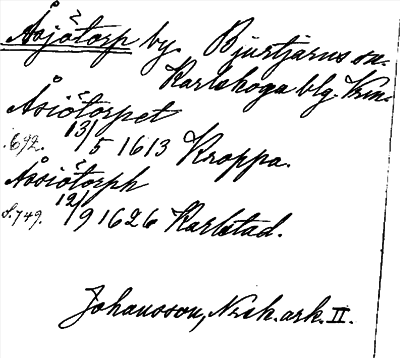 Åsjötorp by. Bjurtjärns sn.
Karlskoga blg. Krm.
Åsiötorpet
s.692. 13/5 1613 Kroppa.
Åssiötorph
s.749. 12/9 1626 Karlstad.
Johansson, Norsk.ark. II.